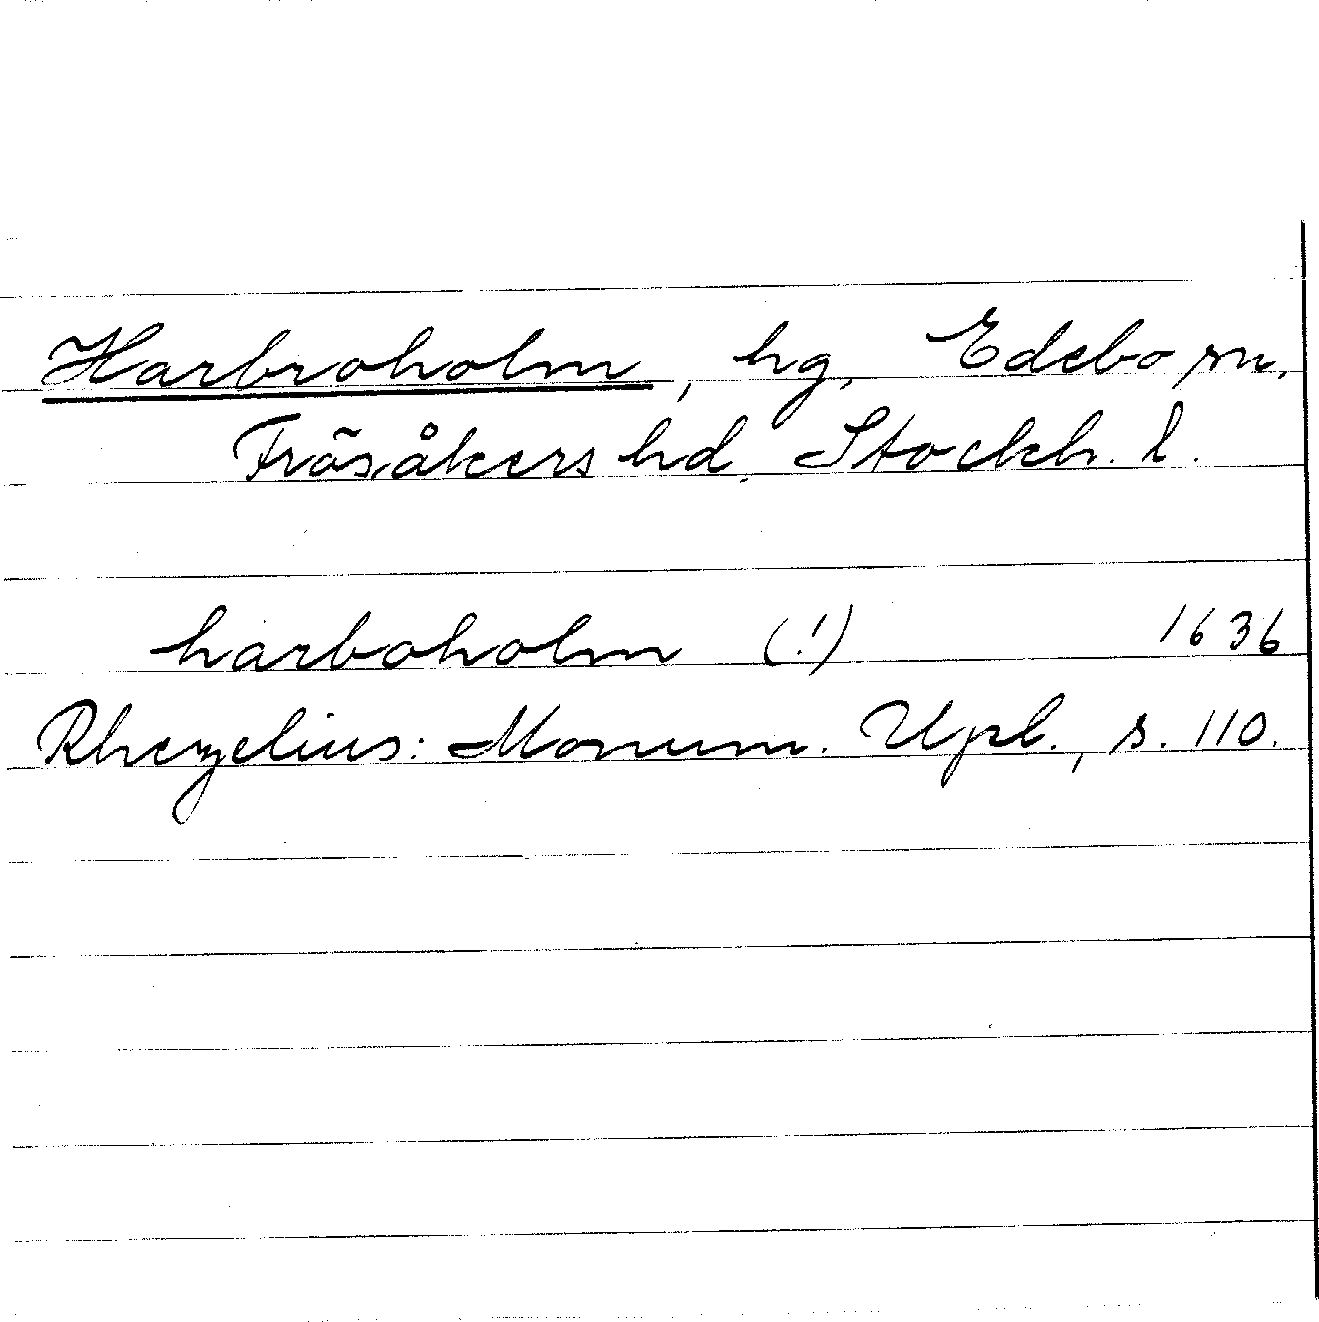 Harbroholm, hg, Edebo sn,
Frösåkers hd, Stockh. l.
harboholm (!) 1636
Rhezelius: Monum. Upl., s. 110.